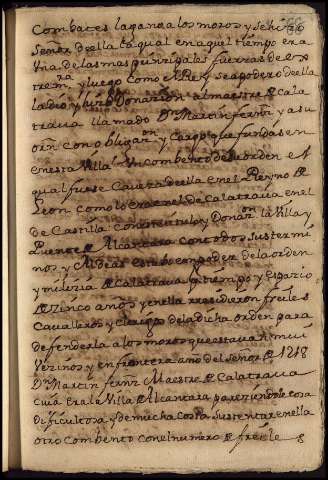 Combaces la gano a los moros y se hizo
Señor della la qual en aquel tiempo era
Una de las mas prinzipales fuerzas de ex
trem.ra y luego como el Rey se apodero della
la dio y hizo Donazion al maestre de Cala
traua llamado D.n Martin fernz y a su
orn con obligaz.on y cargo que fundasen
en esta Villa Un combento de su orden el
qual fuese Caueza della en el Reyno de
Leon como lo era el de Calatraua en el
de Castilla con este titulo y Donaz.on la Villa y
Puente de Alcantara con todos sus termi
nos y Aldeas estubo en poder de la orden
y milizia de Calatraua por tiempo y espazio
de zinco años y en ella rresidieron freiles
Caualleros y clerigos de la dicha orden para
defenderla a los moros que estauan mui
Vezinos y en frontera año del Señor de 1218
D.n Martin fernz Maestre de Calatraua
cuia era la Villa de Alcantara pareziendole cosa
dificultosa y de mucha costa sustentar en ella
otro combento con el numero de freile s